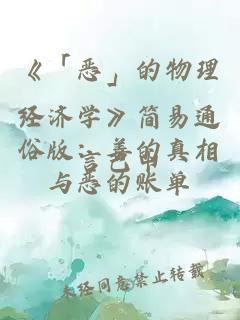 《「恶」的物理
经济学》简易通
俗版：善的真相
与恶的账单
言己由
未经同意禁止转载